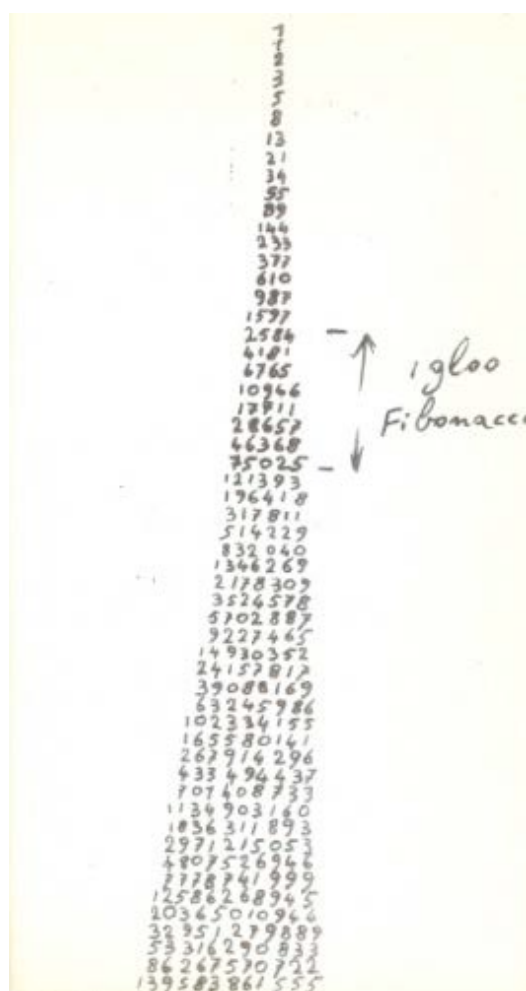 1
1
2
3
5
8
13
21
34
55
89
144
233
377
610
987
1597
2584
4181
6765
10946
17711
28657
46368
75025
121393
196418
317811
514229
832040
1346269
2178309
3524578
5702887
9227465
14930352
24157817
39088169
63245986
102334155
165580141
267914296
433494437
701408733
1134903160
1836311893
2971215053
4807526946
7778741999
12586268945
20365010944
32951279889
53316290833
86267570722
139583861555
igloo
Fibonacci